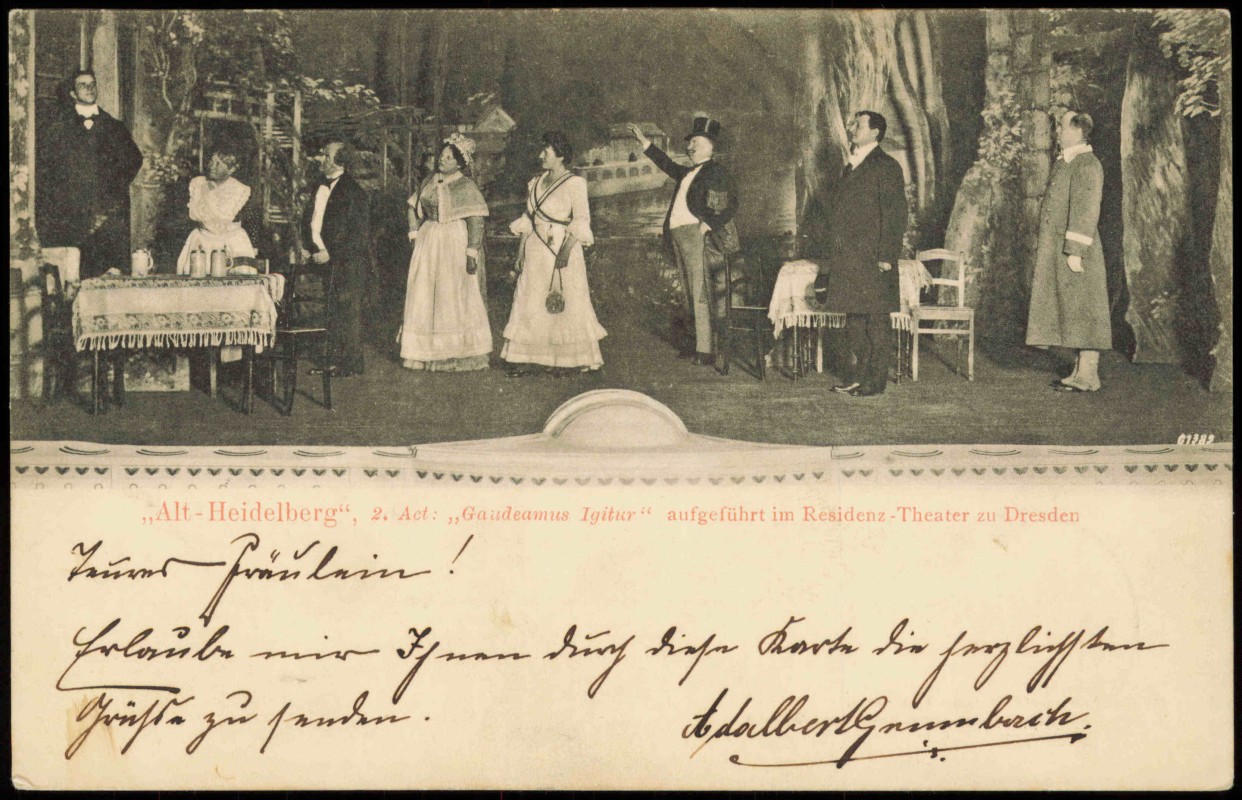 01382
„Alt-Heidelberg“, 2. Act: „Gaudeamus Igitur“ aufgeführt im Residenz-Theater zu Dresden
Teures Fräulein!
Erlaube mir Ihnen durch diese Karte die herzlichsten
Grüsse zu senden. Adalbert